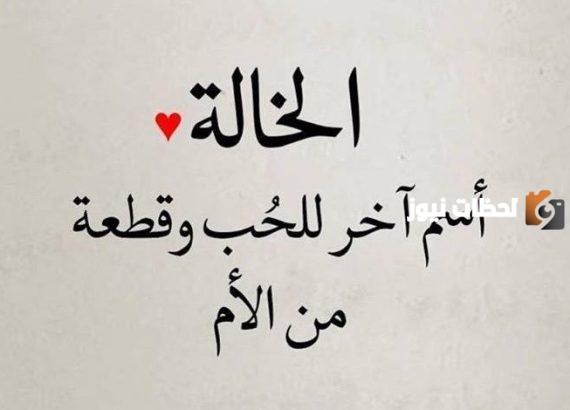 الخالة
أسم آخر للحُب وقطعة
من الأم
لحظات نيوز